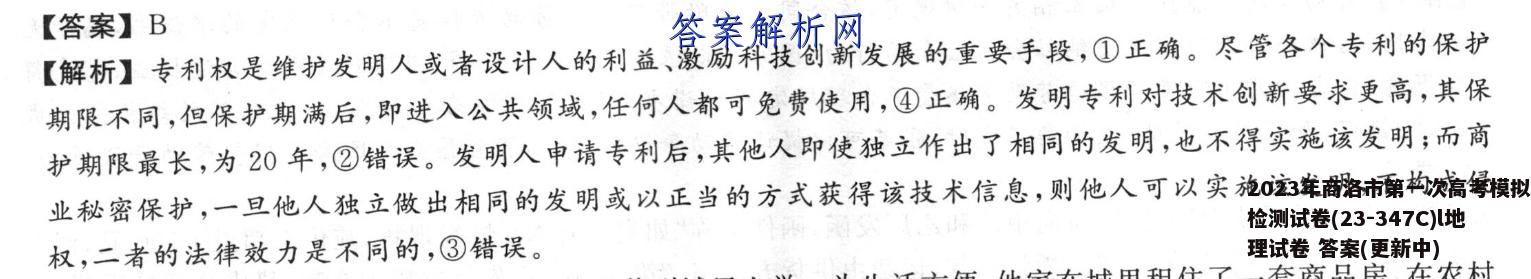 【答案】B
答案解析网
【解析】专利权是维护发明人或者设计人的利益、激励科技创新发展的重要手段,①正确。尽管各个专利的保护
期限不同,但保护期满后,即进入公共领域,任何人都可免费使用,④正确。发明专利对技术创新要求更高,其保
护期限最长,为 20 年,②错误。发明人申请专利后,其他人即使独立作出了相同的发明,也不得实施该发明;而商
业秘密保护,一旦他人独立做出相同的发明或以正当的方式获得该技术信息,则他人可以实施
权,二者的法律效力是不同的,③错误。
2023年商洛市第一次高考模拟
检测试卷(23-347C)l地
理试卷 答案(更新中)
一套商品房,在农村